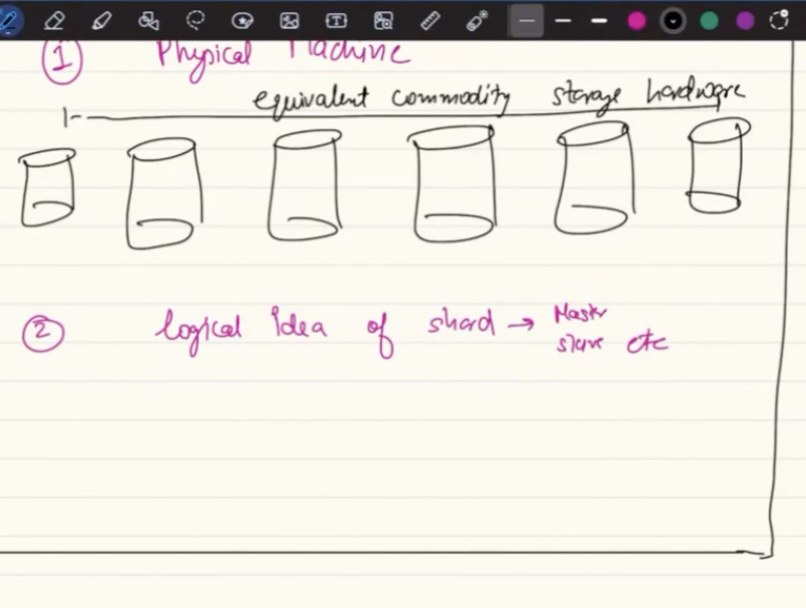 1 Physical Machine
equivalent commodity storage hardware
2 logical Idea of shard → Master
slave etc